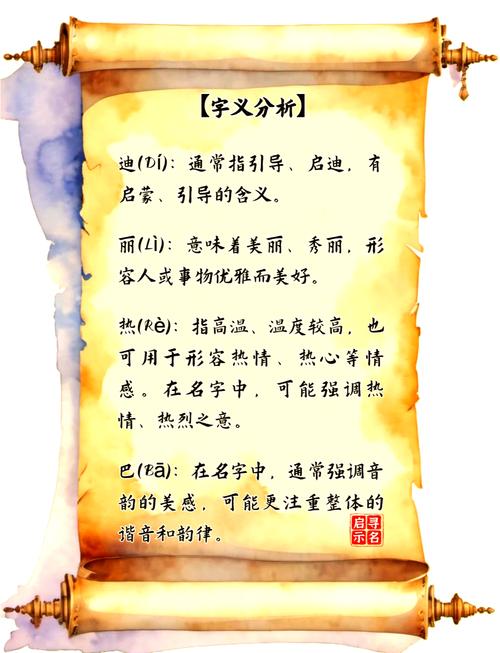 【字义分析】
迪(Dí)：通常指引导、启迪，有
启蒙、引导的含义。
丽(Lì)：意味着美丽、秀丽，形
容人或事物优雅而美好。
热(Rè)：指高温、温度较高，也
可用于形容热情、热心等情
感。在名字中，可能强调热
情、热烈之意。
巴(Bā)：在名字中，通常强调音
韵的美感，可能更注重整体的
谐音和韵律。
寻名
启示